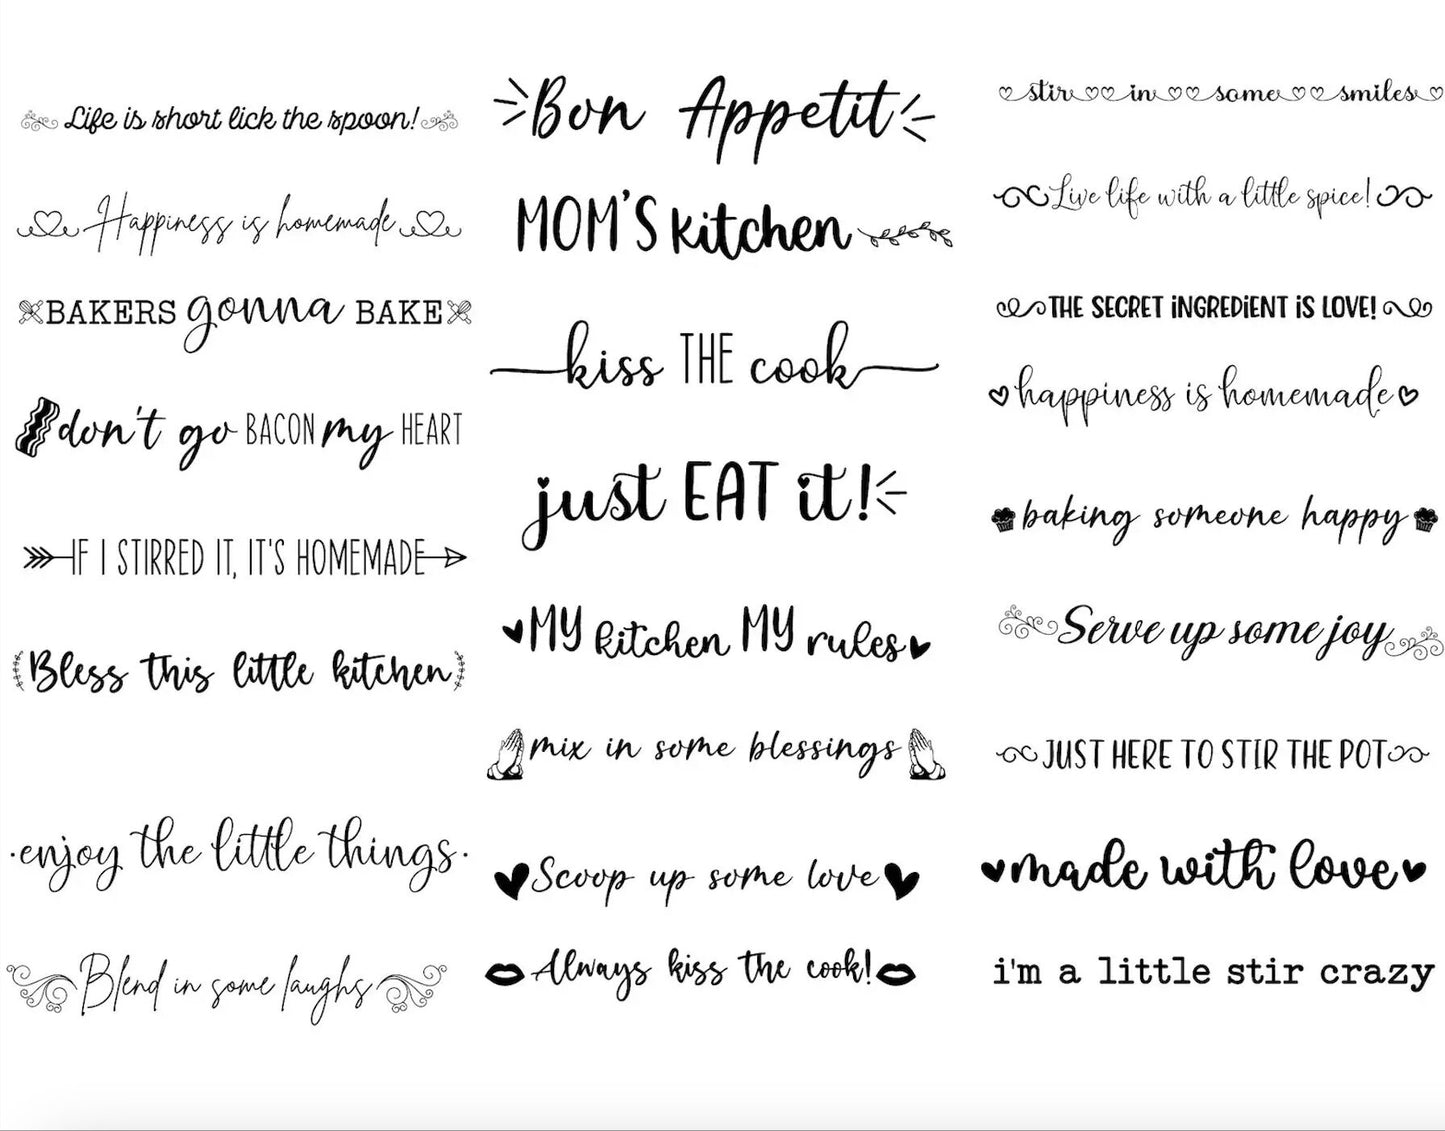 Life is short lick the spoon!
Happiness is homemade
BAKERS gonna BAKE
don't go BACON my HEART
IF I STIRRED IT, IT'S HOMEMADE
Bless this little kitchen
enjoy the little things
Blend in some laughs
Bon Appetit
MOM'S kitchen
kiss THE cook
just EAT it!
MY kitchen MY rules
mix in some blessings
Scoop up some love
Always kiss the cook!
stir in some smiles
Live life with a little spice!
THE SECRET iNGREDiENT iS LOVE!
happiness is homemade
baking someone happy
Serve up some joy
JUST HERE TO STIR THE POT
made with love
i'm a little stir crazy